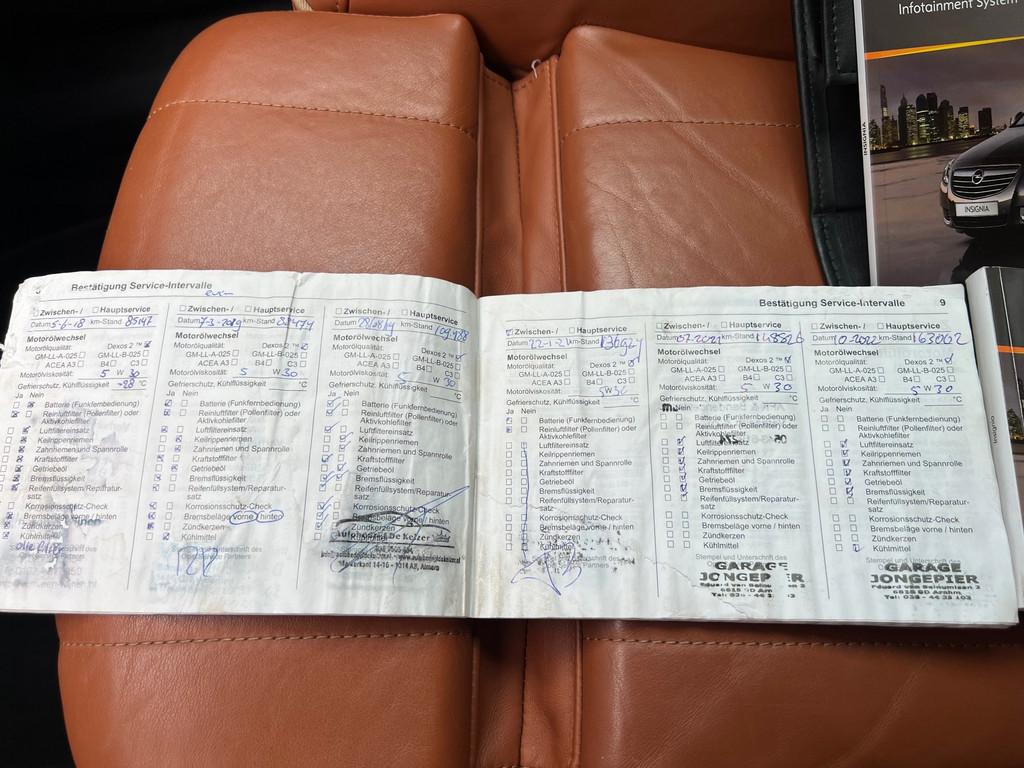 Infotainment System
INSIGNIA
INSIGNIA
Bestätigung Service-Intervalle
Zwischen-/ Hauptservice
Datum 5-6-18 km-Stand 85147
Motorölwechsel
Motorölqualität: Dexos 2 ™
GM-LL-A-025 GM-LL-B-025
ACEA A3 B4 C3
Motorviskosität: 5 W 30
Gefrierschutz, Kühlflüssigkeit -28 °C
Ja Nein
Batterie (Funkfernbedienung)
Reinluftfilter (Pollenfilter) oder
Aktivkohlefilter
Luftfiltereinsatz
Keilrippenriemen
Zahnriemen und Spannrolle
Kraftstofffilter
Getriebeöl
Bremsflüssigkeit
Reifenfüllsystem/Reparatur-
satz
Korrosionsschutz-Check
Bremsbeläge vorne / hinten
Zündkerzen
Kühlmittel
Zwischen-/ Hauptservice
Datum km-Stand
Motorölwechsel
Motorölqualität: Dexos 2 ™
GM-LL-A-025 GM-LL-B-025
ACEA A3 B4 C3
Motorviskosität: 5 W 30
Gefrierschutz, Kühlflüssigkeit °C
Ja Nein
Batterie (Funkfernbedienung)
Reinluftfilter (Pollenfilter) oder
Aktivkohlefilter
Luftfiltereinsatz
Keilrippenriemen
Zahnriemen und Spannrolle
Kraftstofffilter
Getriebeöl
Bremsflüssigkeit
Reifenfüllsystem/Reparatur-
satz
Korrosionsschutz-Check
Bremsbeläge vorne / hinten
Zündkerzen
Kühlmittel
Zwischen-/ Hauptservice
Datum km-Stand 109.428
Motorölwechsel
Motorölqualität: Dexos 2 ™
GM-LL-A-025 GM-LL-B-025
ACEA A3 B4 C3
Motorviskosität: 5 W 30
Gefrierschutz, Kühlflüssigkeit °C
Ja Nein
Batterie (Funkfernbedienung)
Reinluftfilter (Pollenfilter) oder
Aktivkohlefilter
Luftfiltereinsatz
Keilrippenriemen
Zahnriemen und Spannrolle
Kraftstofffilter
Getriebeöl
Bremsflüssigkeit
Reifenfüllsystem/Reparatur-
satz
Korrosionsschutz-Check
Bremsbeläge vorne / hinten
Zündkerzen
Autobedrijf De Keizer
Markerkant 14-16 - 1314 AB, Almere
Bestätigung Service-Intervalle 9
Zwischen-/ Hauptservice
Datum km-Stand
Motorölwechsel
Motorölqualität: Dexos 2 ™
GM-LL-A-025 GM-LL-B-025
ACEA A3 B4 C3
Motorölviskosität: 5 W 30
Gefrierschutz, Kühlflüssigkeit °C
Ja Nein
Batterie (Funkfernbedienung)
Reinluftfilter (Pollenfilter) oder
Aktivkohlefilter
Luftfiltereinsatz
Keilrippenriemen
Zahnriemen und Spannrolle
Kraftstofffilter
Getriebeöl
Bremsflüssigkeit
Reifenfüllsystem/Reparatur-
satz
Korrosionsschutz-Check
Bremsbeläge vorne / hinten
Zündkerzen
Kühlmittel
Zwischen-/ Hauptservice
Datum 07-2021 km-Stand 148326
Motorölwechsel
Motorölqualität: Dexos 2 ™
GM-LL-A-025 GM-LL-B-025
ACEA A3 B4 C3
Motorölviskosität: 5 W 30
Gefrierschutz, Kühlflüssigkeit °C
Nein
Batterie (Funkfernbedienung)
Reinluftfilter (Pollenfilter) oder
Aktivkohlefilter
Luftfiltereinsatz
Keilrippenriemen
Zahnriemen und Spannrolle
Kraftstofffilter
Getriebeöl
Bremsflüssigkeit
Reifenfüllsystem/Reparatur-
satz
Korrosionsschutz-Check
Bremsbeläge vorne / hinten
Zündkerzen
Kühlmittel
Stempel und Unterschrift des
GARAGE
Zwischen-/ Hauptservice
Datum 10-2022 km-Stand 163002
Motorölwechsel
Motorölqualität: Dexos 2 ™
GM-LL-A-025 GM-LL-B-025
ACEA A3 B4 C3
Motorölviskosität: 5 W 30
Gefrierschutz, Kühlflüssigkeit °C
Ja Nein
Batterie (Funkfernbedienung)
Reinluftfilter (Pollenfilter) oder
Aktivkohlefilter
Luftfiltereinsatz
Keilrippenriemen
Zahnriemen und Spannrolle
Kraftstofffilter
Getriebeöl
Bremsflüssigkeit
Reifenfüllsystem/Reparatur-
satz
Korrosionsschutz-Check
Bremsbeläge vorne / hinten
Zündkerzen
Kühlmittel
Stempel und Unterschrift des
GARAGE
JONGEPIER